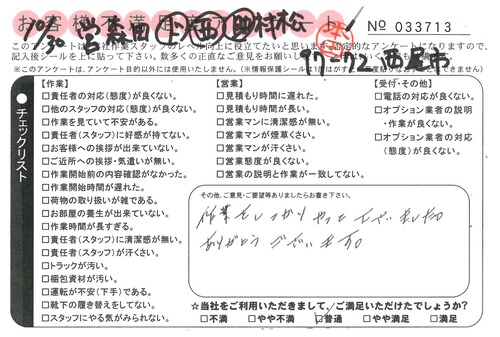 お客様不満
No 033713
10/30 営 森田 ㊤ 西 村松
97-72 西尾市
このアンケートは当社作業スタッフのレベル向上に役立てたいと思います。否定的なアンケートになりますので、
記入後シールを上に貼って下さい。数多くの正直なご意見をお願い
※このアンケートは、アンケート目的以外には使用いたしません。
チェックリスト
【作業】
□責任者の対応(態度)が良くない。
□他のスタッフの対応(態度)が良くない。
□作業を見ていて不安がある。
□責任者(スタッフ)に好感が持てない。
□お客様への挨拶が出来ていない。
□ご近所への挨拶・気遣いが無い。
□作業開始前の内容確認がなかった。
□作業開始時間が遅れた。
□荷物の取り扱いが雑である。
□お部屋の養生が出来ていない。
□作業時間が長すぎる。
□責任者(スタッフ)に清潔感が無い。
□責任者(スタッフ)が汗くさい。
□トラックが汚い。
□梱包資材が汚い。
□運転が不安(下手)である。
□靴下の履き替えをしてない。
□スタッフにやる気がみられない。
【営業】
□見積もり時間に遅れた。
□見積もり時間が長い。
□営業マンに清潔感が無い。
□営業マンが煙草くさい。
□営業マンが汗くさい。
□営業態度が良くない。
□営業の説明と作業が一致してない。
【受付・その他】
□電話の対応が良くない。
□オプション業者の説明
・作業が良くない。
□オプション業者の対応
(態度)が良くない。
その他、ご意見・ご要望等ありましたらお書き下さい。
作業をしっかりやって下さいました
ありがとうございます。
☆当社をご利用いただきまして、ご満足いただけたでしょうか?
□不満 □やや不満 □普通 □やや満足 □満足